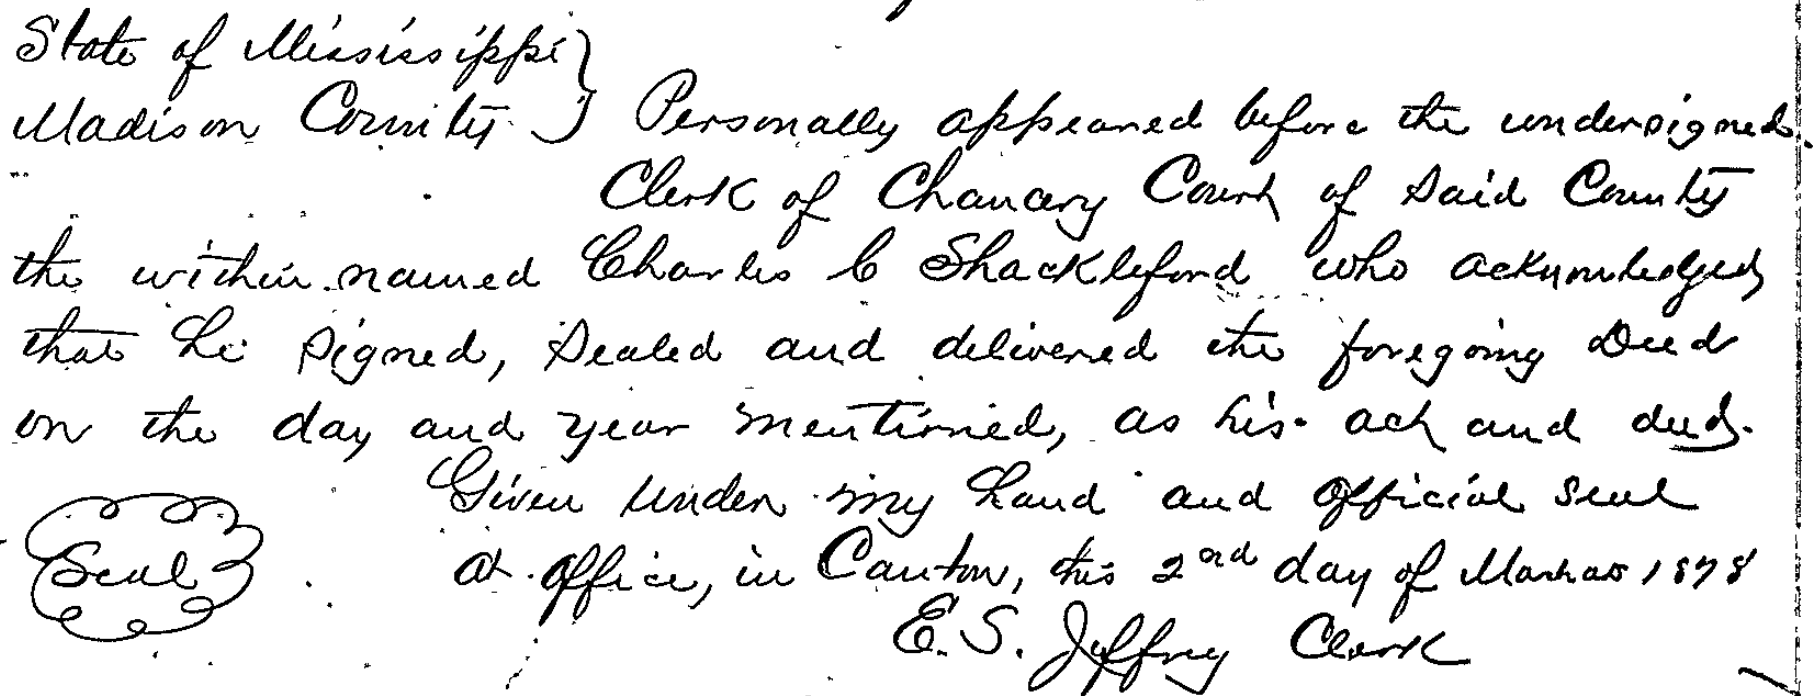 State of Mississippi }
Madison County } Personally appeared before the undersigned
Clerk of Chancery Court of said County
the within named Charles C Shackleford who acknowledged
that he signed, sealed and delivered the foregoing Deed
on the day and year mentioned, as his act and deed.
Given under my hand and official seal
Seal at office, in Canton, this 2nd day of 1878
E. S. Jeffrey Clerk